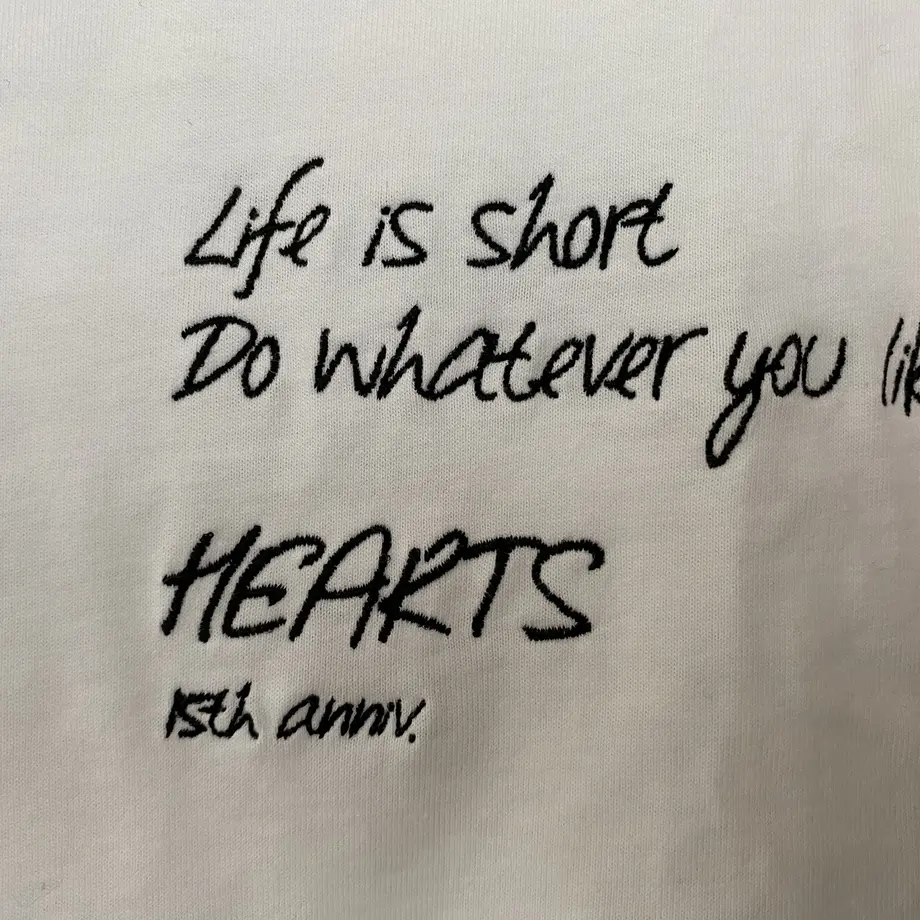 Life is short
Do whatever you
HEARTS
15th anniv.